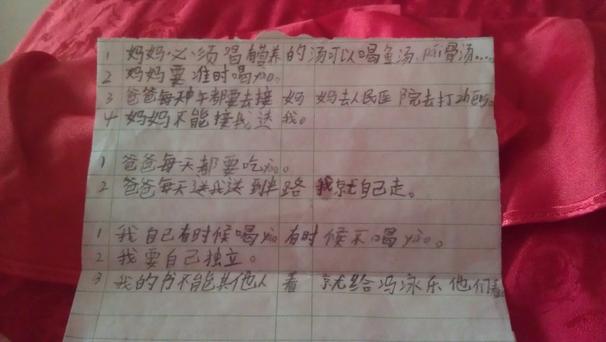 1 妈妈必须喝有营养的汤可以喝鱼汤、排骨汤....
2 妈妈要准时喝yào。
3 爸爸每天中午都要去接妈妈去人民医院去打
4 妈妈不能接我送我。
1 爸爸每天都要吃yào。
2 爸爸每天送我送到半路我就自己走。
1 我自己有时候喝yào有时候不喝yào。
2 我要自己独立。
3 我的书不能其他人看就给冯泳乐他们看